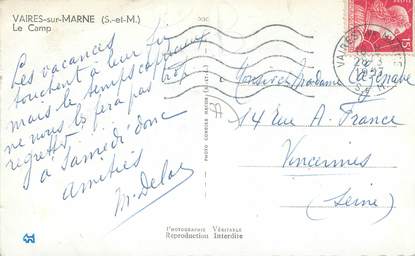 VAIRES-sur-MARNE (S.-et-M.)
Le Camp
Les vacances
touchent à leur fin
mais le temps capricieux
ne nous les fera pas trop
regretter
à Samedi donc
amitiés
M. Delae
PHOTO CONSEIL MACON (S.-et-L.)
PHOTOGRAPHIE VÉRITABLE
Reproduction Interdite
15
VAIRES
Monsieur Madame
14 Rue A. France
Vincennes
(Seine)